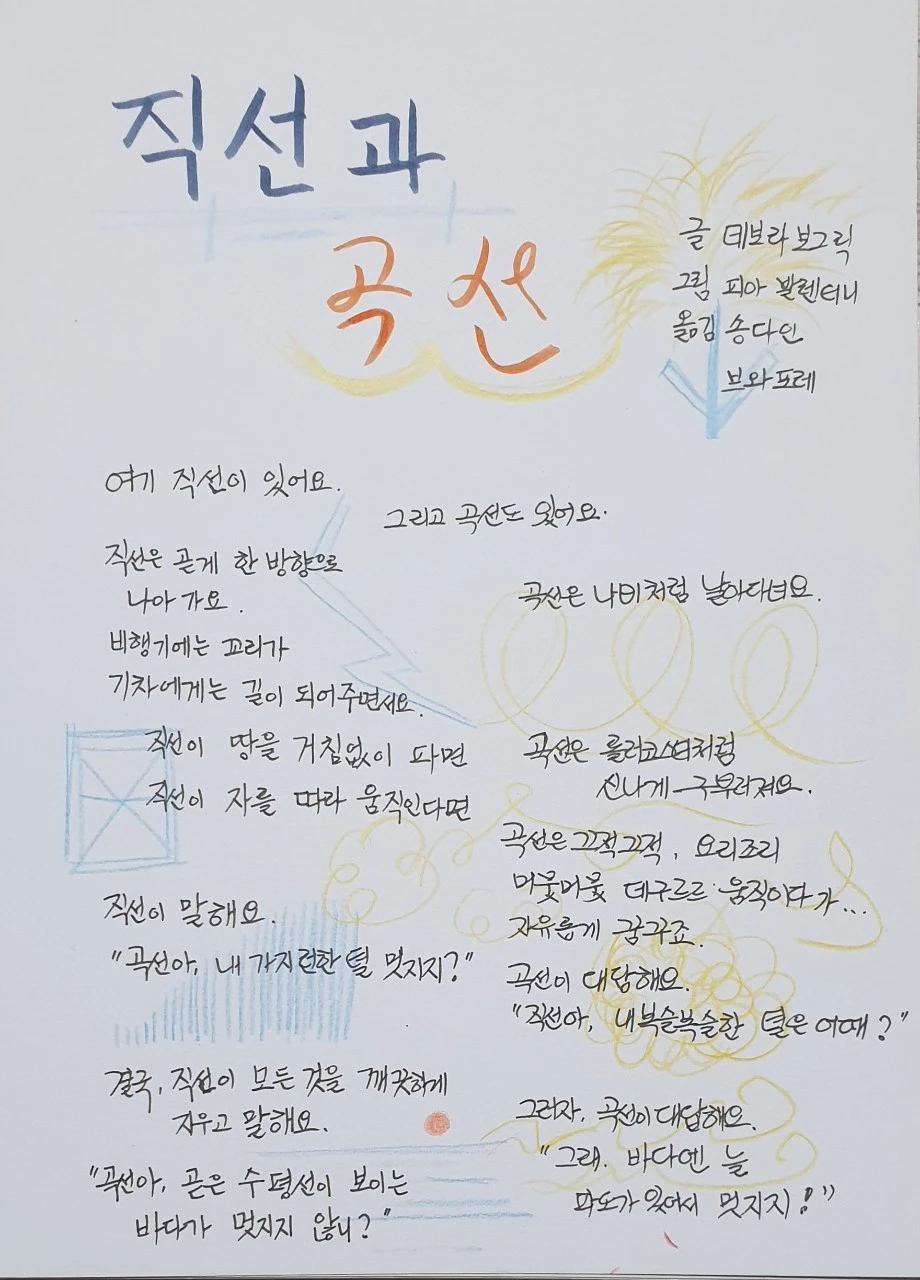 직선과
곡선
글 데보라 보그릭
그림 피아 발렌티니
옮김 송다인
브와포레
여기 직선이 있어요.
그리고 곡선도 있어요.
직선은 곧게 한 방향으로
나아가요.
비행기에는 꼬리가
기차에게는 길이 되어주면서요.
곡선은 나비처럼 날아다녀요.
직선이 땅을 거침없이 파면
직선이 자를 따라 움직인다면
곡선은 롤러코스터처럼
신나게 구부러져요.
곡선은 끄적끄적, 요리조리
머뭇머뭇 데구르르 움직이다가...
자유롭게 꿈꾸죠.
직선이 말해요.
"곡선아, 내 가지런한 털 멋지지?"
곡선이 대답해요.
"직선아, 내 복슬복슬한 털은 어때?"
결국, 직선이 모든 것을 깨끗하게
지우고 말해요.
"곡선아, 곧은 수평선이 보이는
바다가 멋지지 않니?"
그러자, 곡선이 대답해요.
"그래. 바다엔 늘
파도가 있어서 멋지지!"